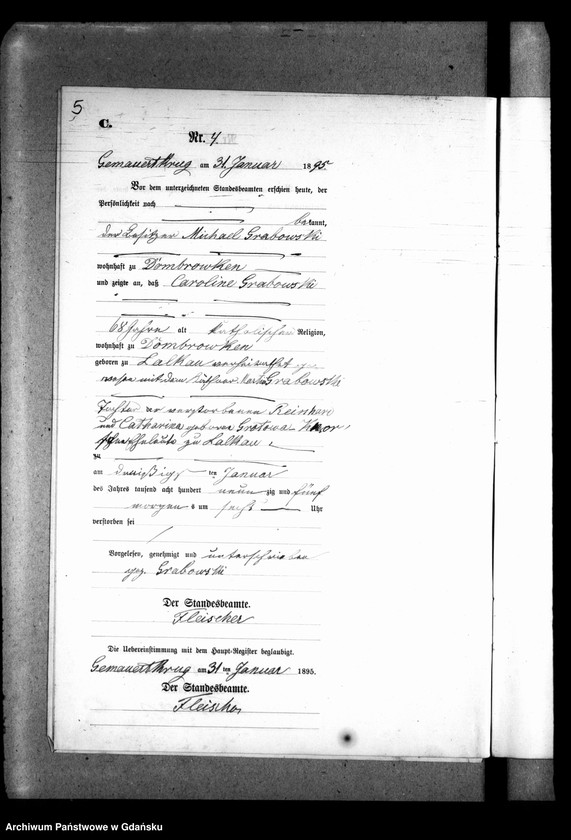 5
C.
Nr. 4.
Gemauert Krug am 31. Januar 1895.
Vor dem unterzeichneten Standesbeamten erschien heute, der
Persönlichkeit nach
bekannt,
der Besitzer Michael Grabowski
wohnhaft zu Dombrowken
und zeigte an, daß Caroline Grabowski
68 Jahre alt katholischer Religion,
wohnhaft zu Dombrowken
geboren zu Lalkau verheirathet ge-
wesen mit dem Grabowski
Tochter der verstorbenen Reinhard
und Catharina geborene
Eheleute zu Lalkau
zu
am dreißigs ten Januar
des Jahres tausend acht hundert neun zig und fünf
morgens um sechs Uhr
verstorben sei
Vorgelesen, genehmigt und unterschrieben
gez. Grabowski
Der Standesbeamte.
Fleischer
Die Uebereinstimmung mit dem Haupt-Register beglaubigt.
Gemauert Krug am 31 ten Januar 1895.
Der Standesbeamte.
Fleischer
Archiwum Państwowe w Gdańsku